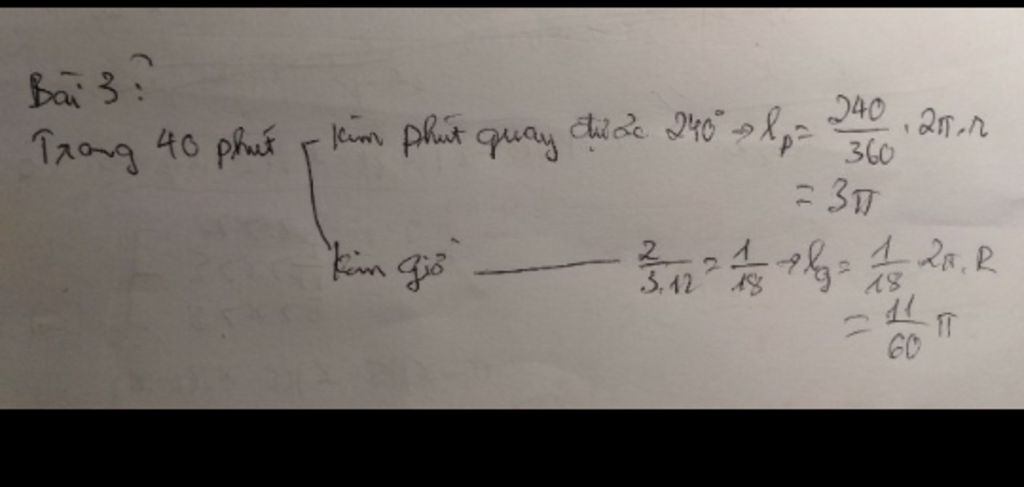 Bài 3:
Trong 40 phút kim phút quay được 240° → lp = 240/360 . 2π.r
= 3π
kim giờ —— 2/3.12 = 1/18 → lg = 1/18 2π.R
= 11/60 π